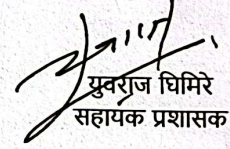 युवराज घिमिरे
सहायक प्रशासक